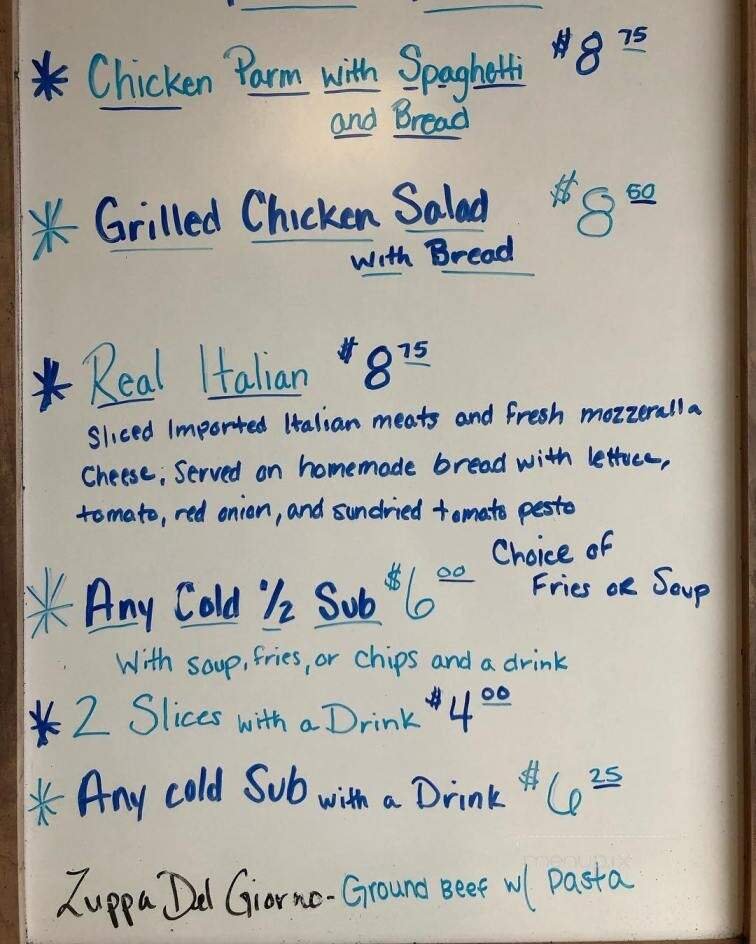 * Chicken Parm with Spaghetti $8 75
and Bread
* Grilled Chicken Salad $8 50
with Bread
* Real Italian $8 75
Sliced Imported Italian meats and fresh mozzeralla
Cheese; Served on homemade bread with lettuce,
tomato, red onion, and sundried tomato pesto
Choice of
Fries or Soup
* Any Cold 1/2 Sub $6 00
With soup, fries, or chips and a drink
* 2 Slices with a Drink $4 00
* Any cold Sub with a Drink $6 25
menupix
Zuppa Del Giorno - Ground Beef w/ pasta